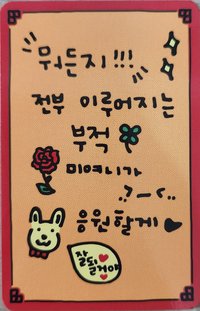 뭐든지!!!
전부 이루어지는
부적
미여니가
응원할게
잘 될
거야